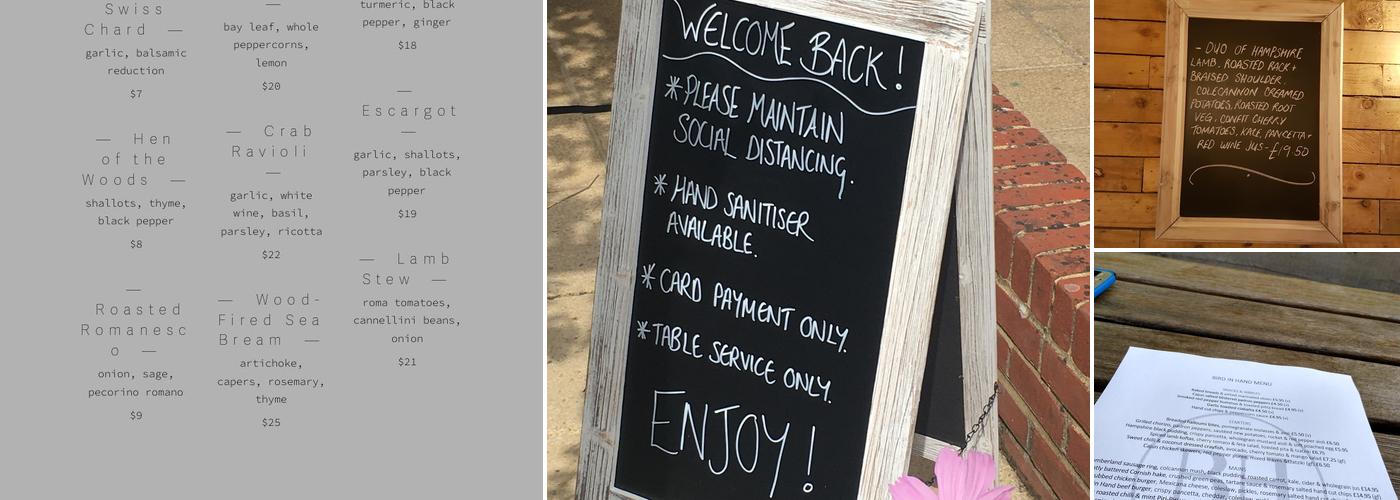 Swiss
Chard —
garlic, balsamic
reduction
$7
— Hen
of the
Woods —
shallots, thyme,
black pepper
$8
—
Roasted
Romanesc
o —
onion, sage,
pecorino romano
$9
—
bay leaf, whole
peppercorns,
lemon
$20
— Crab
Ravioli
—
garlic, white
wine, basil,
parsley, ricotta
$22
— Wood-
Fired Sea
Bream —
artichoke,
capers, rosemary,
thyme
$25
turmeric, black
pepper, ginger
$18
—
Escargot
—
garlic, shallots,
parsley, black
pepper
$19
— Lamb
Stew —
roma tomatoes,
cannellini beans,
onion
$21
WELCOME BACK!
*PLEASE MAINTAIN
SOCIAL DISTANCING.
* HAND SANITISER
AVAILABLE.
* CARD PAYMENT ONLY.
*TABLE SERVICE ONLY.
ENJOY!
- DUO OF HAMPSHIRE
LAMB. ROASTED RACK +
BRAISED SHOULDER.
COLECANNON CREAMED
POTATOES, ROASTED ROOT
VEG, CONFIT CHERRY
TOMATOES, KALE, PANCETTA +
RED WINE JUS - £19.50
BIRD IN HAND MENU
STARTERS
MAINS